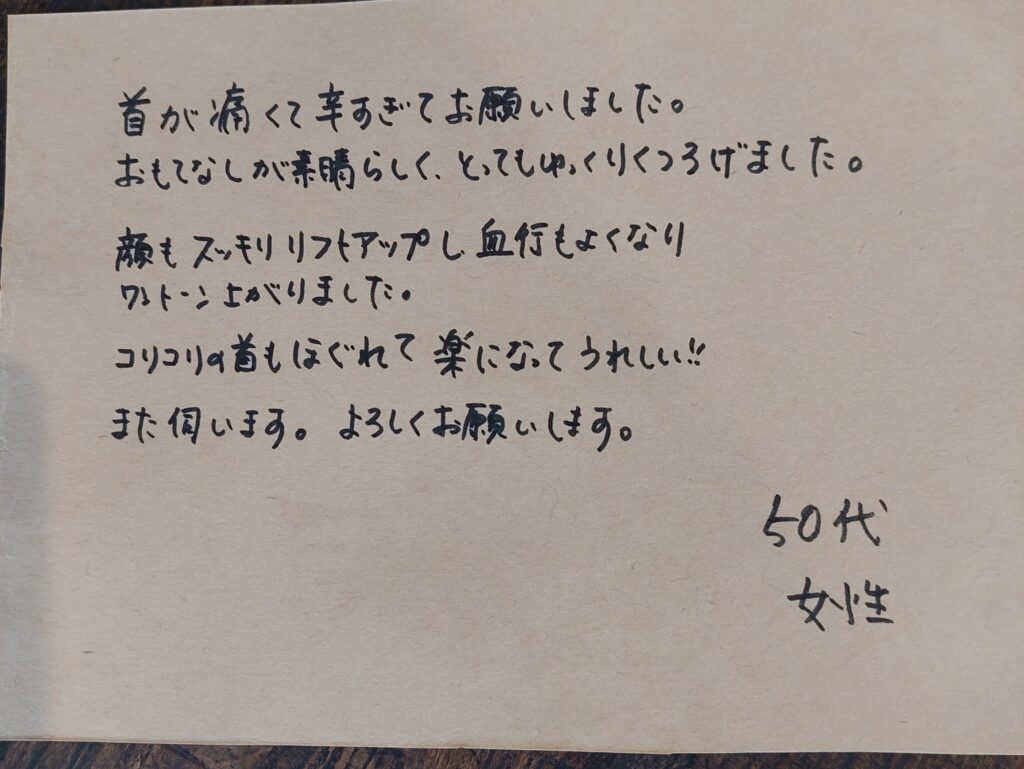 首が痛くて辛すぎてお願いしました。
おもてなしが素晴らしく、とってもゆっくりくつろげました。
顔もスッキリリフトアップし、血行もよくなり
ワントーン上がりました。
コリコリの首もほぐれて楽になってうれしい!!
また伺います。よろしくお願いします。
50代
女性